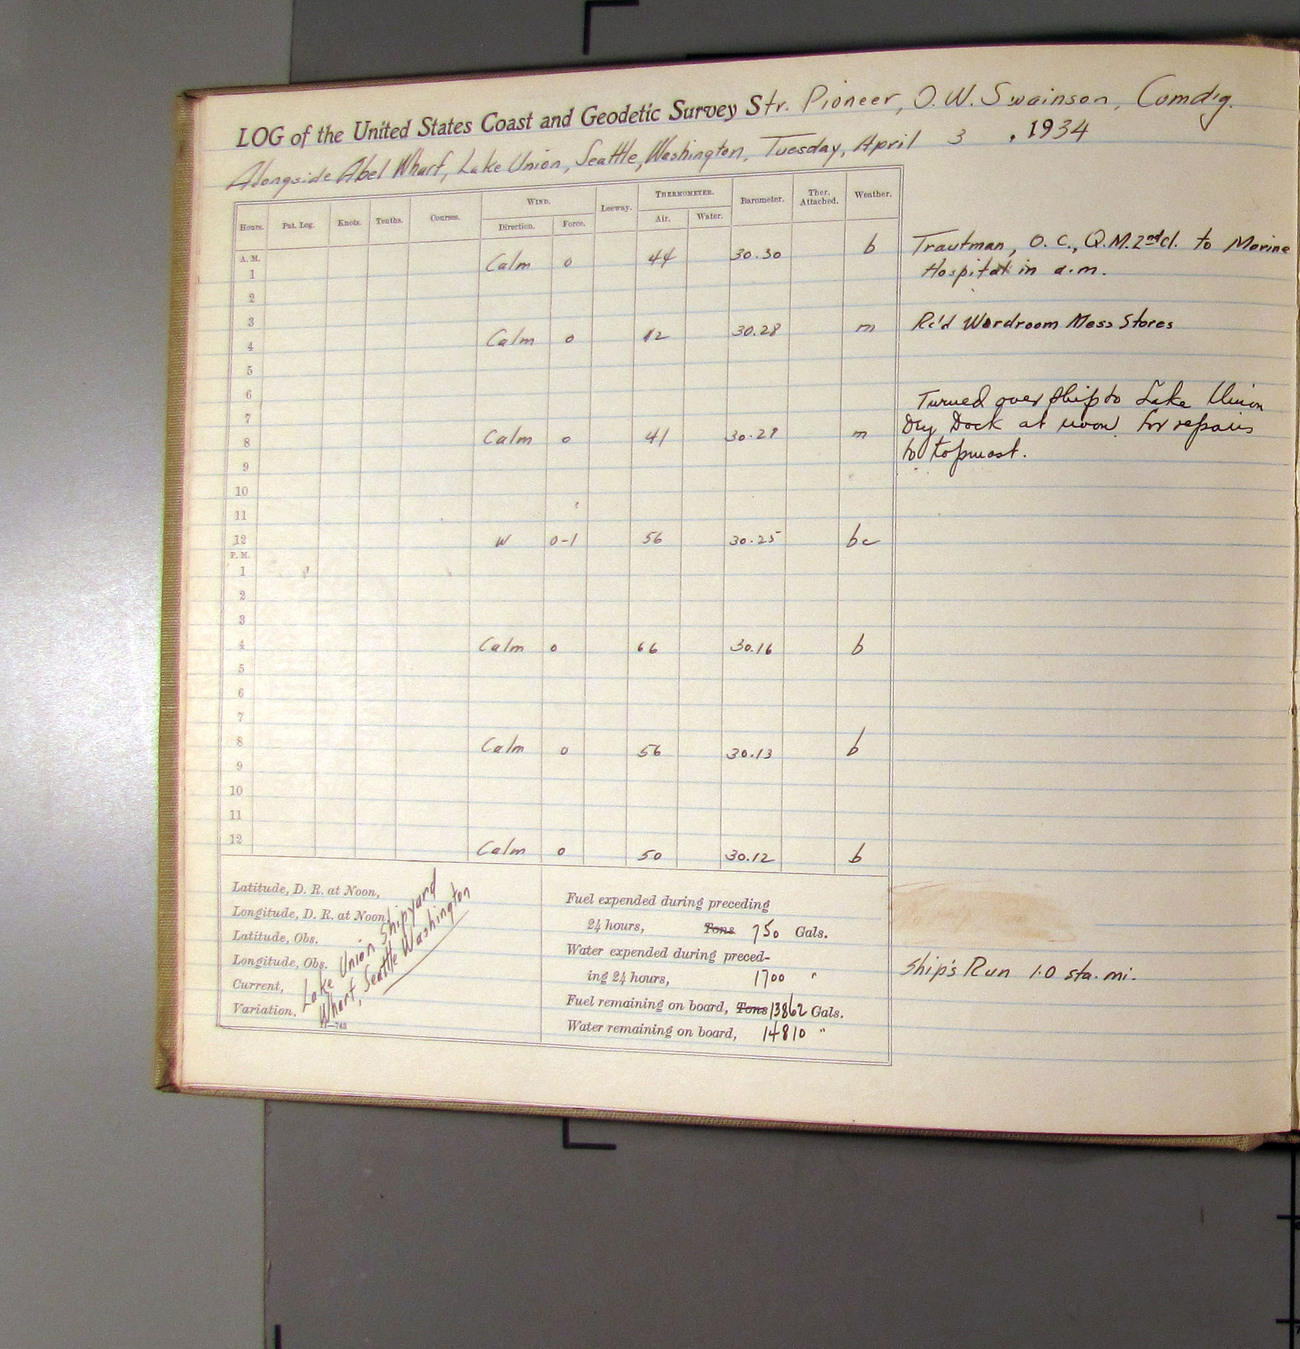 LOG of the United States Coast and Geodetic Survey Str. Pioneer, O. W. Swainson, Comdg.
Alongside Abel Wharf, Lake Union, Seattle, Washington, Tuesday, April 3, 1934
Hours. Pat. Log. Knots. Tenths. Courses. WIND. Leeway. THERMOMETER. Barometer. Ther. Attached. Weather.
Direction. Force. Air. Water.
A. M. Calm 0 44 30.30 b
1
2
3
4 Calm 0 42 30.28 m
5
6
7
8 Calm 0 41 30.29 m
9
10
11
12 W 0-1 56 30.25 bc
P. M.
1
2
3
4 Calm 0 66 30.16 b
5
6
7
8 Calm 0 56 30.13 b
9
10
11
12 Calm 0 50 30.12 b
Trautman, O. C., Q.M. 2nd cl. to Marine
Hospital in a.m.
Rc'd Wardroom Mess Stores
Turned over ship to Lake Union
Dry Dock at noon for repairs
to topmast.
Latitude, D. R. at Noon,
Longitude, D. R. at Noon,
Latitude, Obs.
Longitude, Obs.
Current,
Variation,
Lake Union Shipyard
Wharf, Seattle Washington
11—743
Fuel expended during preceding
24 hours, Tons 750 Gals.
Water expended during preced-
ing 24 hours, 1700 "
Fuel remaining on board, Tons 13862 Gals.
Water remaining on board, 14810 "
Ship's Run 1.0 sta. mi.